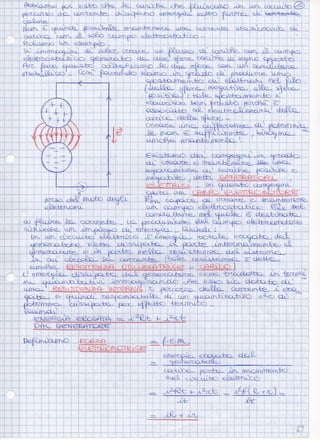 Abbiamo poi visto che le cariche che fluiscono in un circuito
percorso da corrente, dissipano energia sotto forma di
calore.
Non è quindi possibile mantenere una corrente stazionaria di
carica con il solo campo elettrostatico -
Facciamo un esempio
Si immaginare di voler creare un flusso di cariche con il campo
elettrostatico generato da due sfere cariche di segno opposto.
Per fare questo colleghiamo le due sfere con un conduttore
metallico. Così facendo siamo in grado di produrre uno
spostamento di elettroni nel filo
dalla sfera negativa alla sfera
positiva; tale spostamento si
esaurisce ben presto perché è
associato all'neutralizzarsi della
carica delle sfere -
Creare una differenza di potenziale
se non è sufficiente, bisogna
anche mantenerla.
Esistono dei congegni in grado
di creare e mantenere una
separazione di cariche positive e
negative, detti GENERATORI
ELETTRICI. In questi congegni
opera un CAMPO ELETTROMOTORE
senso del moto degli
elettroni
capace di creare e mantenere
un campo elettrostatico E nel
conduttore nel quale è destinato
a fluire la corrente. La produzione del campo elettromotore
richiede un impiego di energia. Quindi:
In un circuito elettrico l'energia totale erogata dal
generatore viene dissipata in parte internamente al
generatore e in parte nella resistenza del sistema
in cui circola la corrente (tale resistenza è detta
anche RESISTENZA UTILIZZATRICE o CARICO)
L'energia dissipata dal generatore viene tradotta in termini
quantitativi immaginando che esso sia dotato di
una RESISTENZA INTERNA r percorsa dalla corrente i
e quindi responsabile di un quantitativo i²r di
potenza dissipata per effetto termico.
Quindi:
ENERGIA EROGATA = i²Rt + i²rt
DAL GENERATORE
Definiamo FORZA
ELETTROMOTRICE = f.e.m.
= energia erogata dal
generatore
carica posta in movimento
nel circuito elettrico
= i²Rt + i²rt
it
= iR + ir